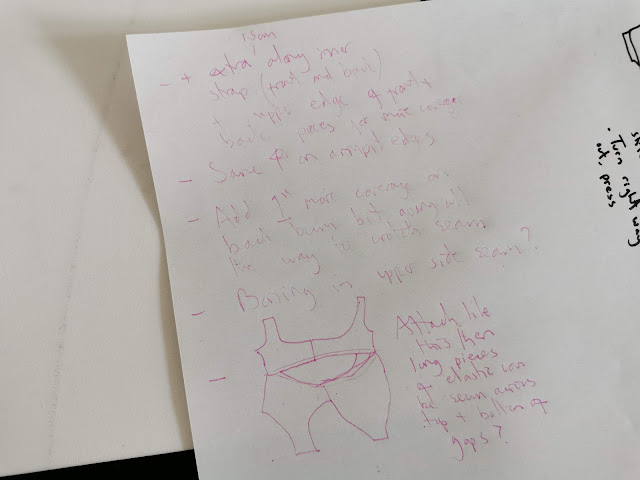 1.5cm
- + extra along inner
strap (front and back)
+ upper edge of front +
back pieces for more coverage
- Same on armpit edges
- Add 1" more coverage on
back bum bit, going all
the way to crotch seam
- Boning in upper side seam?
- Attach like
this then
long pieces
of elastic can
be sewn across
top + bottom of
gaps?
. Turn right way
out, press